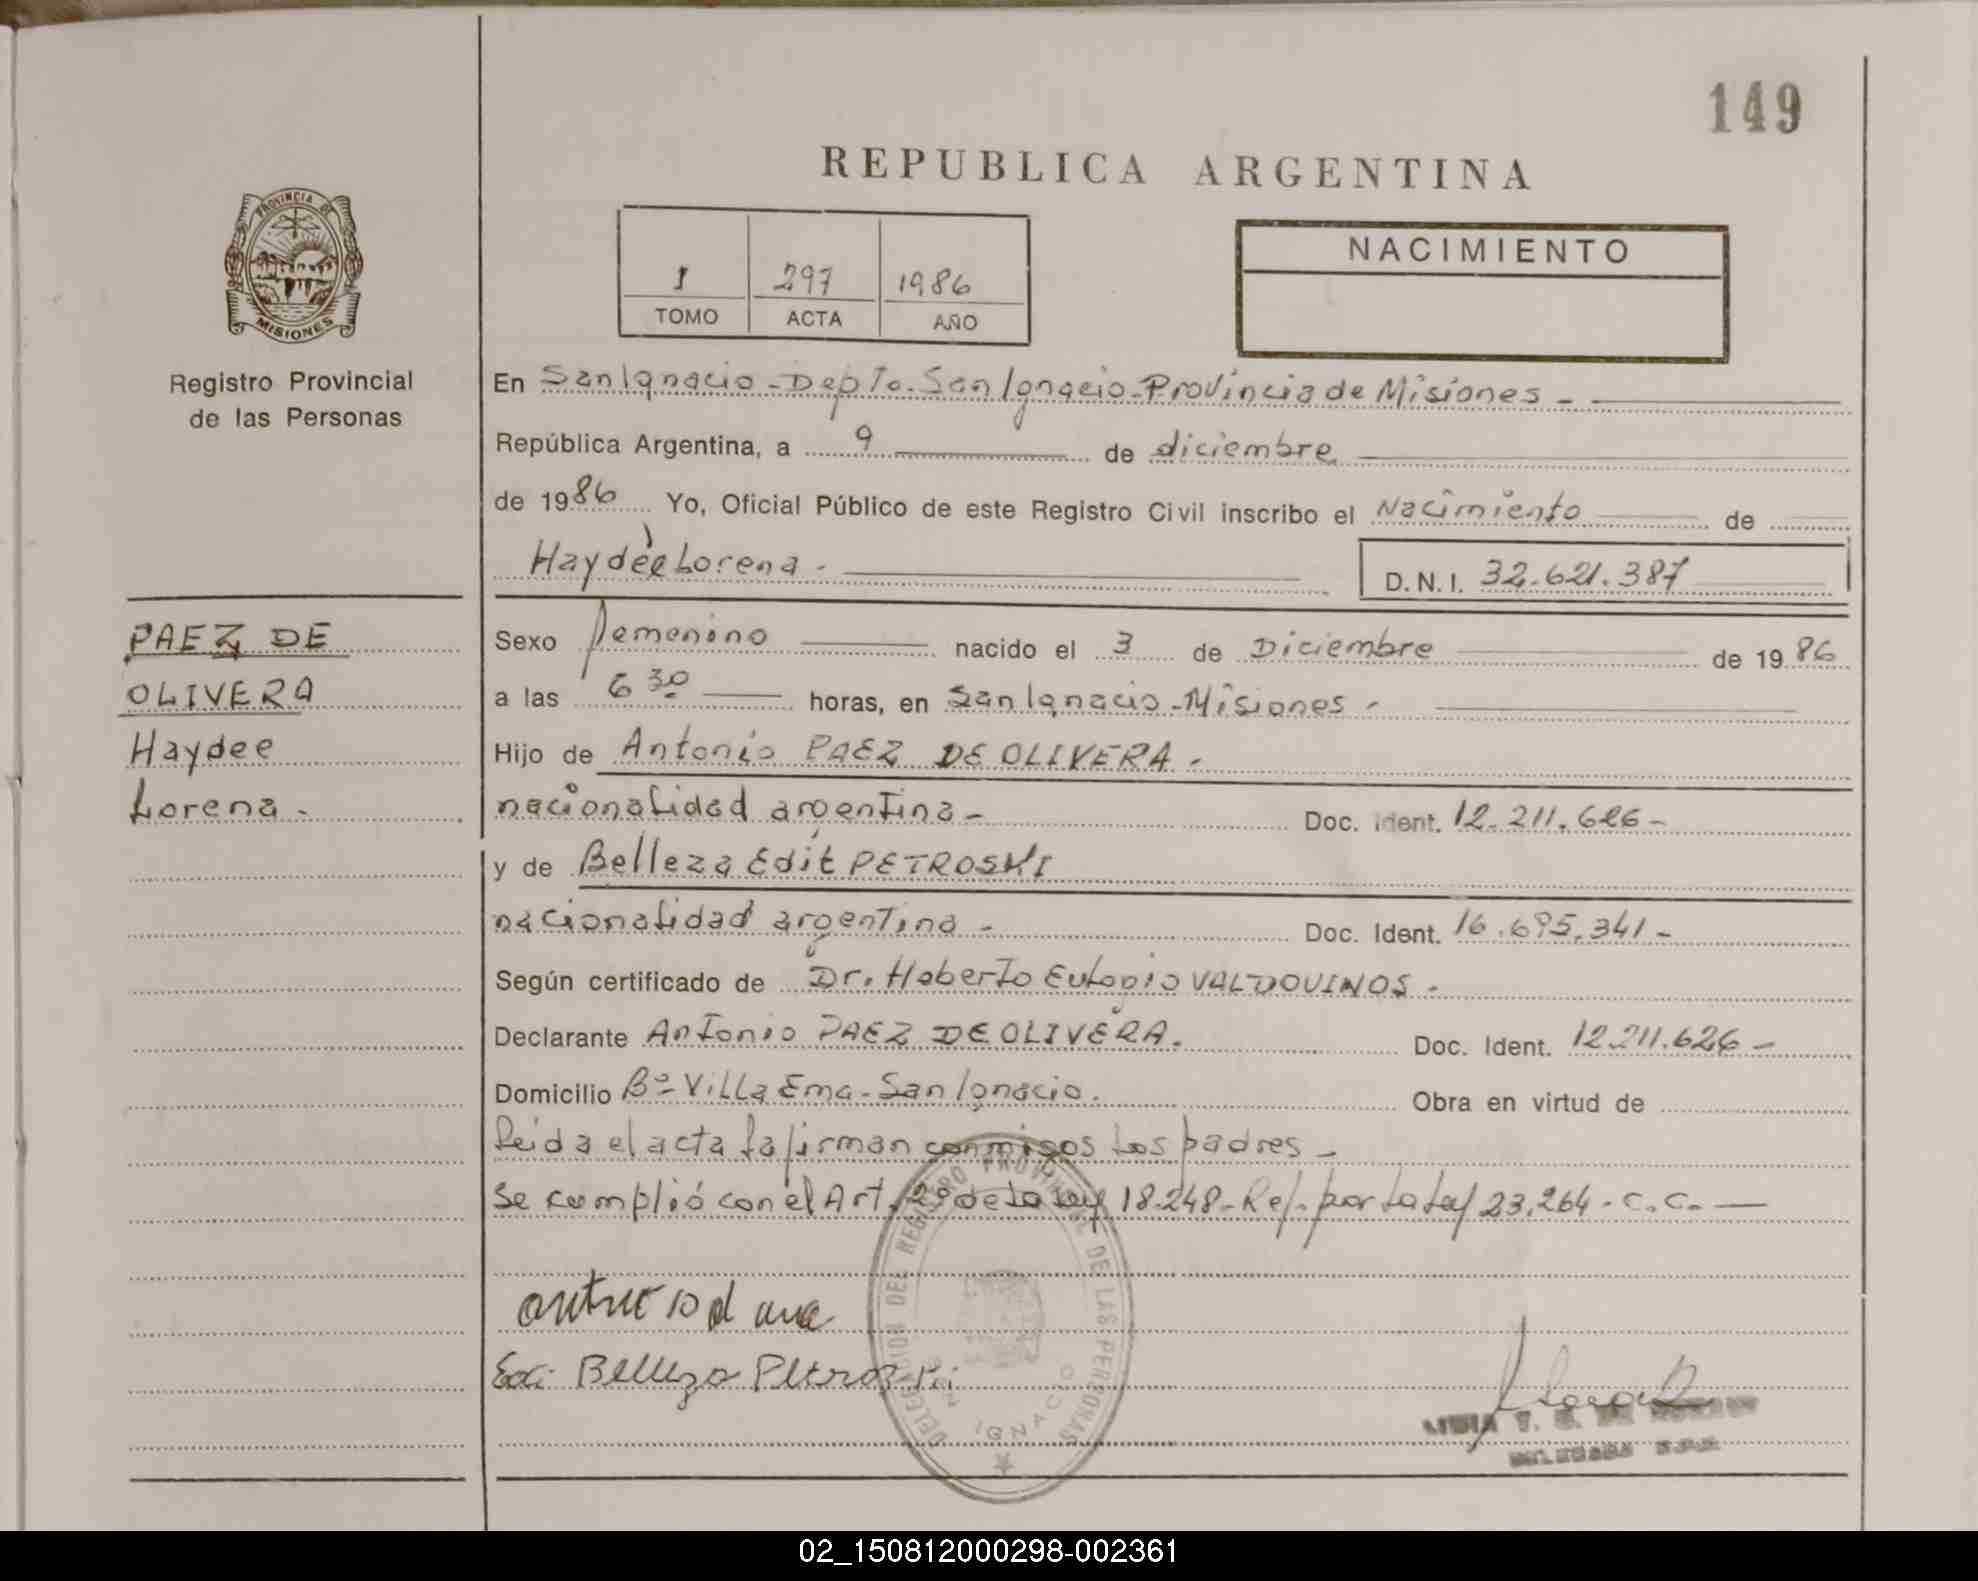 149
REPUBLICA ARGENTINA
PROVINCIA DE
MISIONES
Registro Provincial
de las Personas
I 297 1986
TOMO ACTA AÑO
NACIMIENTO
En San Ignacio - Depto. San Ignacio - Provincia de Misiones -
República Argentina, a 9 de diciembre
de 1986 Yo, Oficial Público de este Registro Civil inscribo el Nacimiento de
Haydée Lorena - D.N.I. 32.621.387
PAEZ DE
OLIVERA
Haydee
Lorena -
Sexo femenino nacido el 3 de Diciembre de 1986
a las 6 30 horas, en San Ignacio - Misiones -
Hijo de Antonio PAEZ DE OLIVERA -
nacionalidad argentina - Doc. Ident. 12.211.626 -
y de Belleza Edit PETROSKI
nacionalidad argentina - Doc. Ident. 16.695.341 -
Según certificado de Dr. Heberto Eulogio VALDOVINOS -
Declarante Antonio PAEZ DE OLIVERA. Doc. Ident. 12.211.626 -
Domicilio Bº Villa Ema - San Ignacio. Obra en virtud de
Leida el acta la firman conmigo los padres -
Se cumplió con el Art. de la Ley 18.248 - Ref. por la Ley 23.264 - C.C. -
Belleza Petroski
DELEGACION DEL REGISTRO PROVINCIAL DE LAS PERSONAS
SAN IGNACIO
02_150812000298-002361